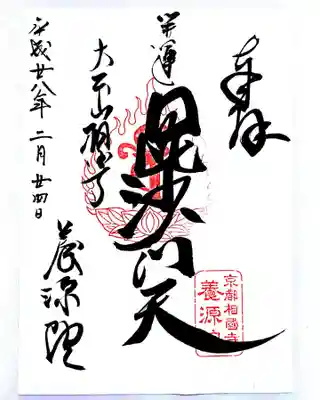 奉拝
開運
毘沙門天
大本山相国寺
養源院
平成廿八年二月廿四日
京都相國寺
養源院